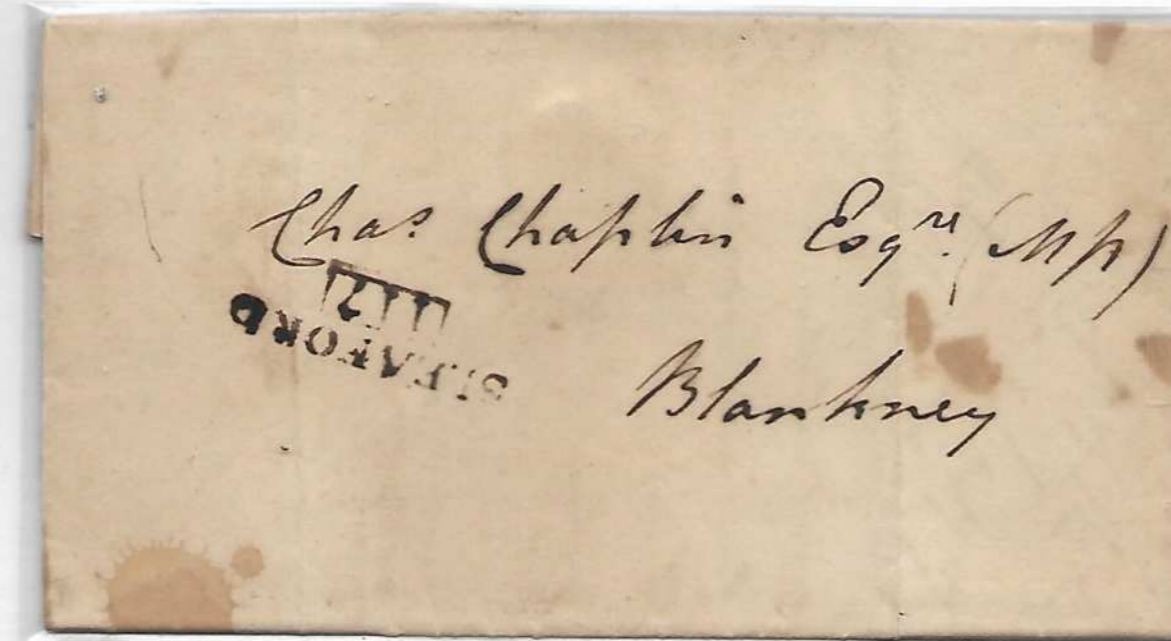 Chas. Chaplin Esqre. (MP)
117
SLEAFORD
Blankney